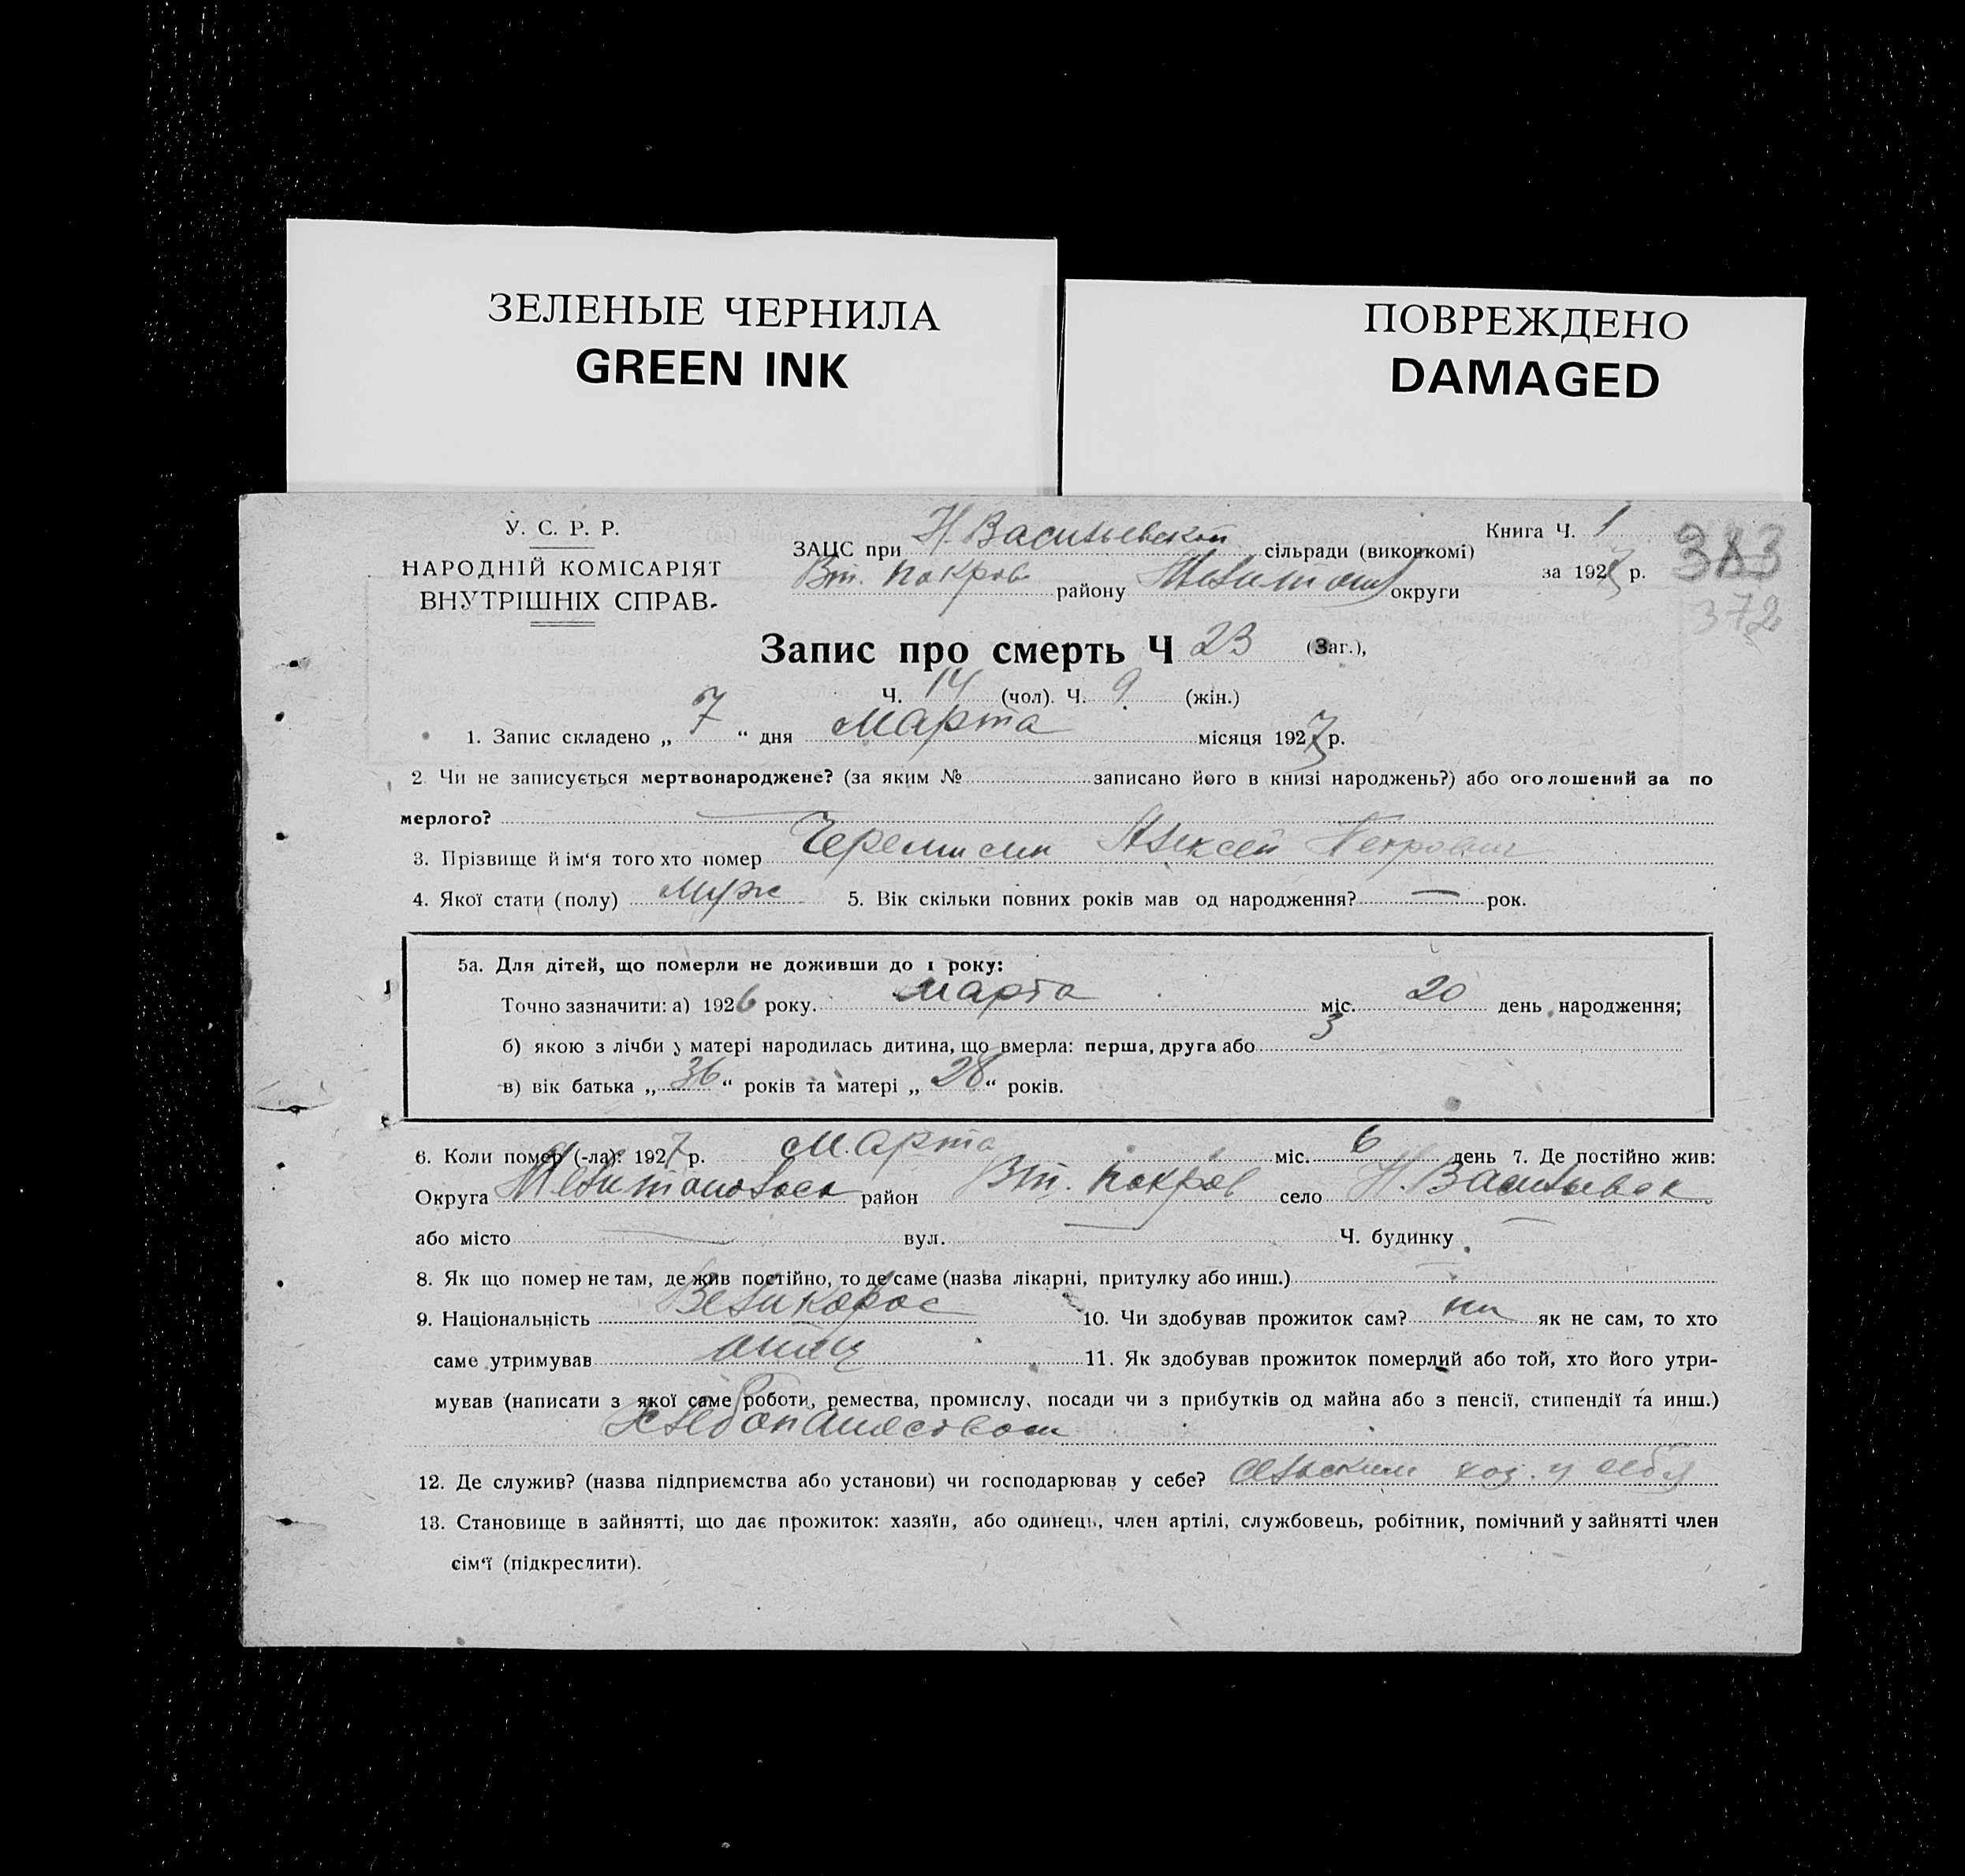 ЗЕЛЕНЫЕ ЧЕРНИЛА
GREEN INK
ПОВРЕЖДЕНО
DAMAGED
У. С. Р. Р.
НАРОДНІЙ КОМІСАРІЯТ
ВНУТРІШНІХ СПРАВ.
ЗАЦС при Н. Васильевской сільради (виковкомі)
Вт. Покров району округи
Книга Ч. 1
за 1927 р.
383
372
Запис про смерть Ч 23 (Заг.),
Ч. 14 (чол). Ч. 9 (жін.)
1. Запис складено „ 7 “ дня Марта місяця 1927 р.
2. Чи не записується мертвонароджене? (за яким № записано його в книзі народжень?) або оголошений за по
мерлого? —
3. Прізвище й ім‘я того хто помер Черемисин Алексей Петрович
4. Якої стати (полу) муж 5. Вік скільки повних років мав од народження? — рок.
5а. Для дітей, що померли не доживши до 1 року:
Точно зазначити: а) 1926 року. марта міс. 20 день народження;
б) якою з лічби у матері народилась дитина, що вмерла: перша, друга або 3
в) вік батька „ 36 “ років та матері „ 28 “ років.
6. Коли помер (-ла): 1927 р. Марта міс. 6 день 7. Де постійно жив:
Округа район Вт. Покров село Н. Васильевск
або місто — вул. — Ч. будинку —
8. Як що помер не там, де жив постійно, то де саме (назва лікарні, притулку або инш.)
9. Національність Великорос 10. Чи здобував прожиток сам? ни як не сам, то хто
саме утримував отец 11. Як здобував прожиток померлий або той, хто його утри-
мував (написати з якої саме роботи, ремества, промислу, посади чи з прибутків од майна або з пенсії, стипендії та инш.)
Хлебопашеством
12. Де служив? (назва підприємства або установи) чи господарював у себе? сельским хоз. у себя
13. Становище в зайнятті, що дає прожиток: хазяїн, або одинець, член артілі, службовець, робітник, помічний у зайнятті член
сім‘ї (підкреслити).